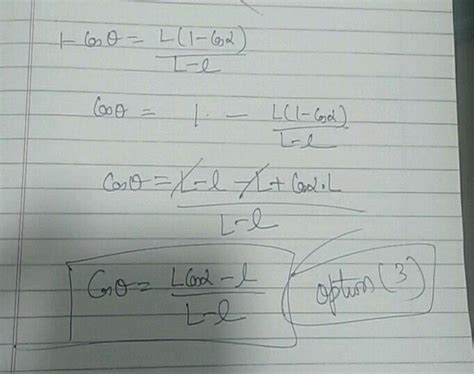 1-Cosθ = L(1-Cosα) / L-l
Cosθ = 1 - L(1-Cosα) / L-l
Cosθ = L-l-L+Cosα.L / L-l
Cosθ = LCosα-l / L-l option (3)